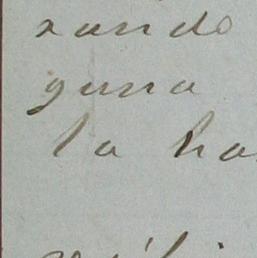 xando
guna
la ha